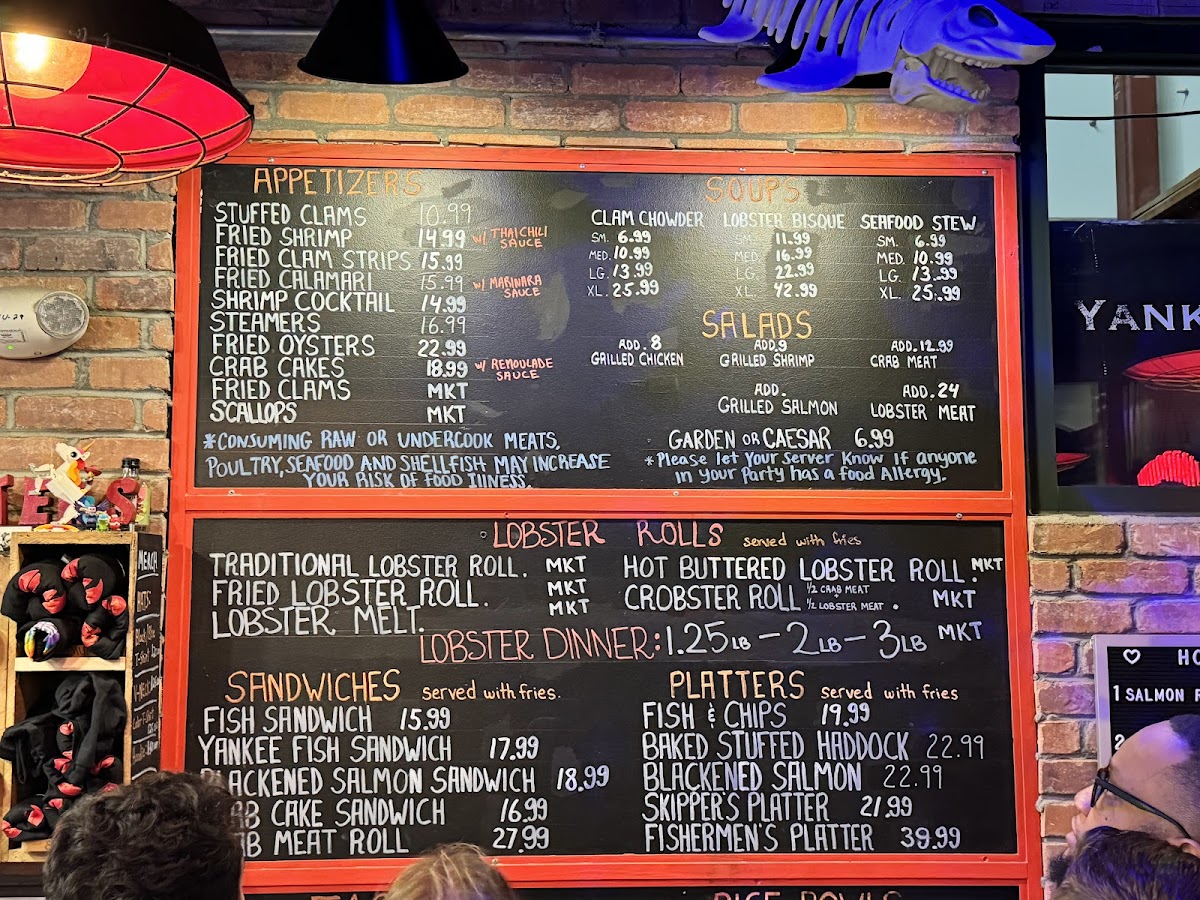 APPETIZERS
STUFFED CLAMS 10.99
FRIED SHRIMP 14.99 w/ THAI CHILI SAUCE
FRIED CLAM STRIPS 15.99
FRIED CALAMARI 15.99 w/ MARINARA SAUCE
SHRIMP COCKTAIL 14.99
STEAMERS 16.99
FRIED OYSTERS 22.99
CRAB CAKES 18.99 w/ REMOULADE SAUCE
FRIED CLAMS MKT
SCALLOPS MKT
*CONSUMING RAW OR UNDERCOOK MEATS,
POULTRY, SEAFOOD AND SHELLFISH MAY INCREASE
YOUR RISK OF FOOD ILLNESS.
SOUPS
CLAM CHOWDER LOBSTER BISQUE SEAFOOD STEW
SM. 6.99 SM. 11.99 SM. 6.99
MED. 10.99 MED. 16.99 MED. 10.99
LG. 13.99 LG. 22.99 LG. 13.99
XL. 25.99 XL. 42.99 XL. 25.99
SALADS
ADD. 8 ADD. 9 ADD. 12.99
GRILLED CHICKEN GRILLED SHRIMP CRAB MEAT
ADD. ADD. 24
GRILLED SALMON LOBSTER MEAT
GARDEN OR CAESAR 6.99
*Please let Your Server Know if anyone
in your Party has a food Allergy.
LOBSTER ROLLS served with fries
TRADITIONAL LOBSTER ROLL. MKT HOT BUTTERED LOBSTER ROLL. MKT
FRIED LOBSTER ROLL. MKT CROBSTER ROLL 1/2 CRAB MEAT 1/2 LOBSTER MEAT. MKT
LOBSTER MELT. MKT
LOBSTER DINNER: 1.25LB - 2LB - 3LB MKT
SANDWICHES served with fries.
FISH SANDWICH 15.99
YANKEE FISH SANDWICH 17.99
BLACKENED SALMON SANDWICH 18.99
AB CAKE SANDWICH 16.99
AB MEAT ROLL 27.99
PLATTERS served with fries
FISH & CHIPS 19.99
BAKED STUFFED HADDOCK 22.99
BLACKENED SALMON 22.99
SKIPPER'S PLATTER 21.99
FISHERMEN'S PLATTER 39.99
RICE BOWLS
YANK
HO
1 SALMON R
2
MERCH
HATS: